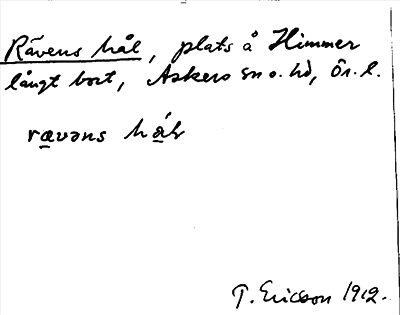 Rävens hål, plats å Himmer
långt bort, Askers sn o. hd, Ör. l.
rævəns hål
T. Ericson 1912.